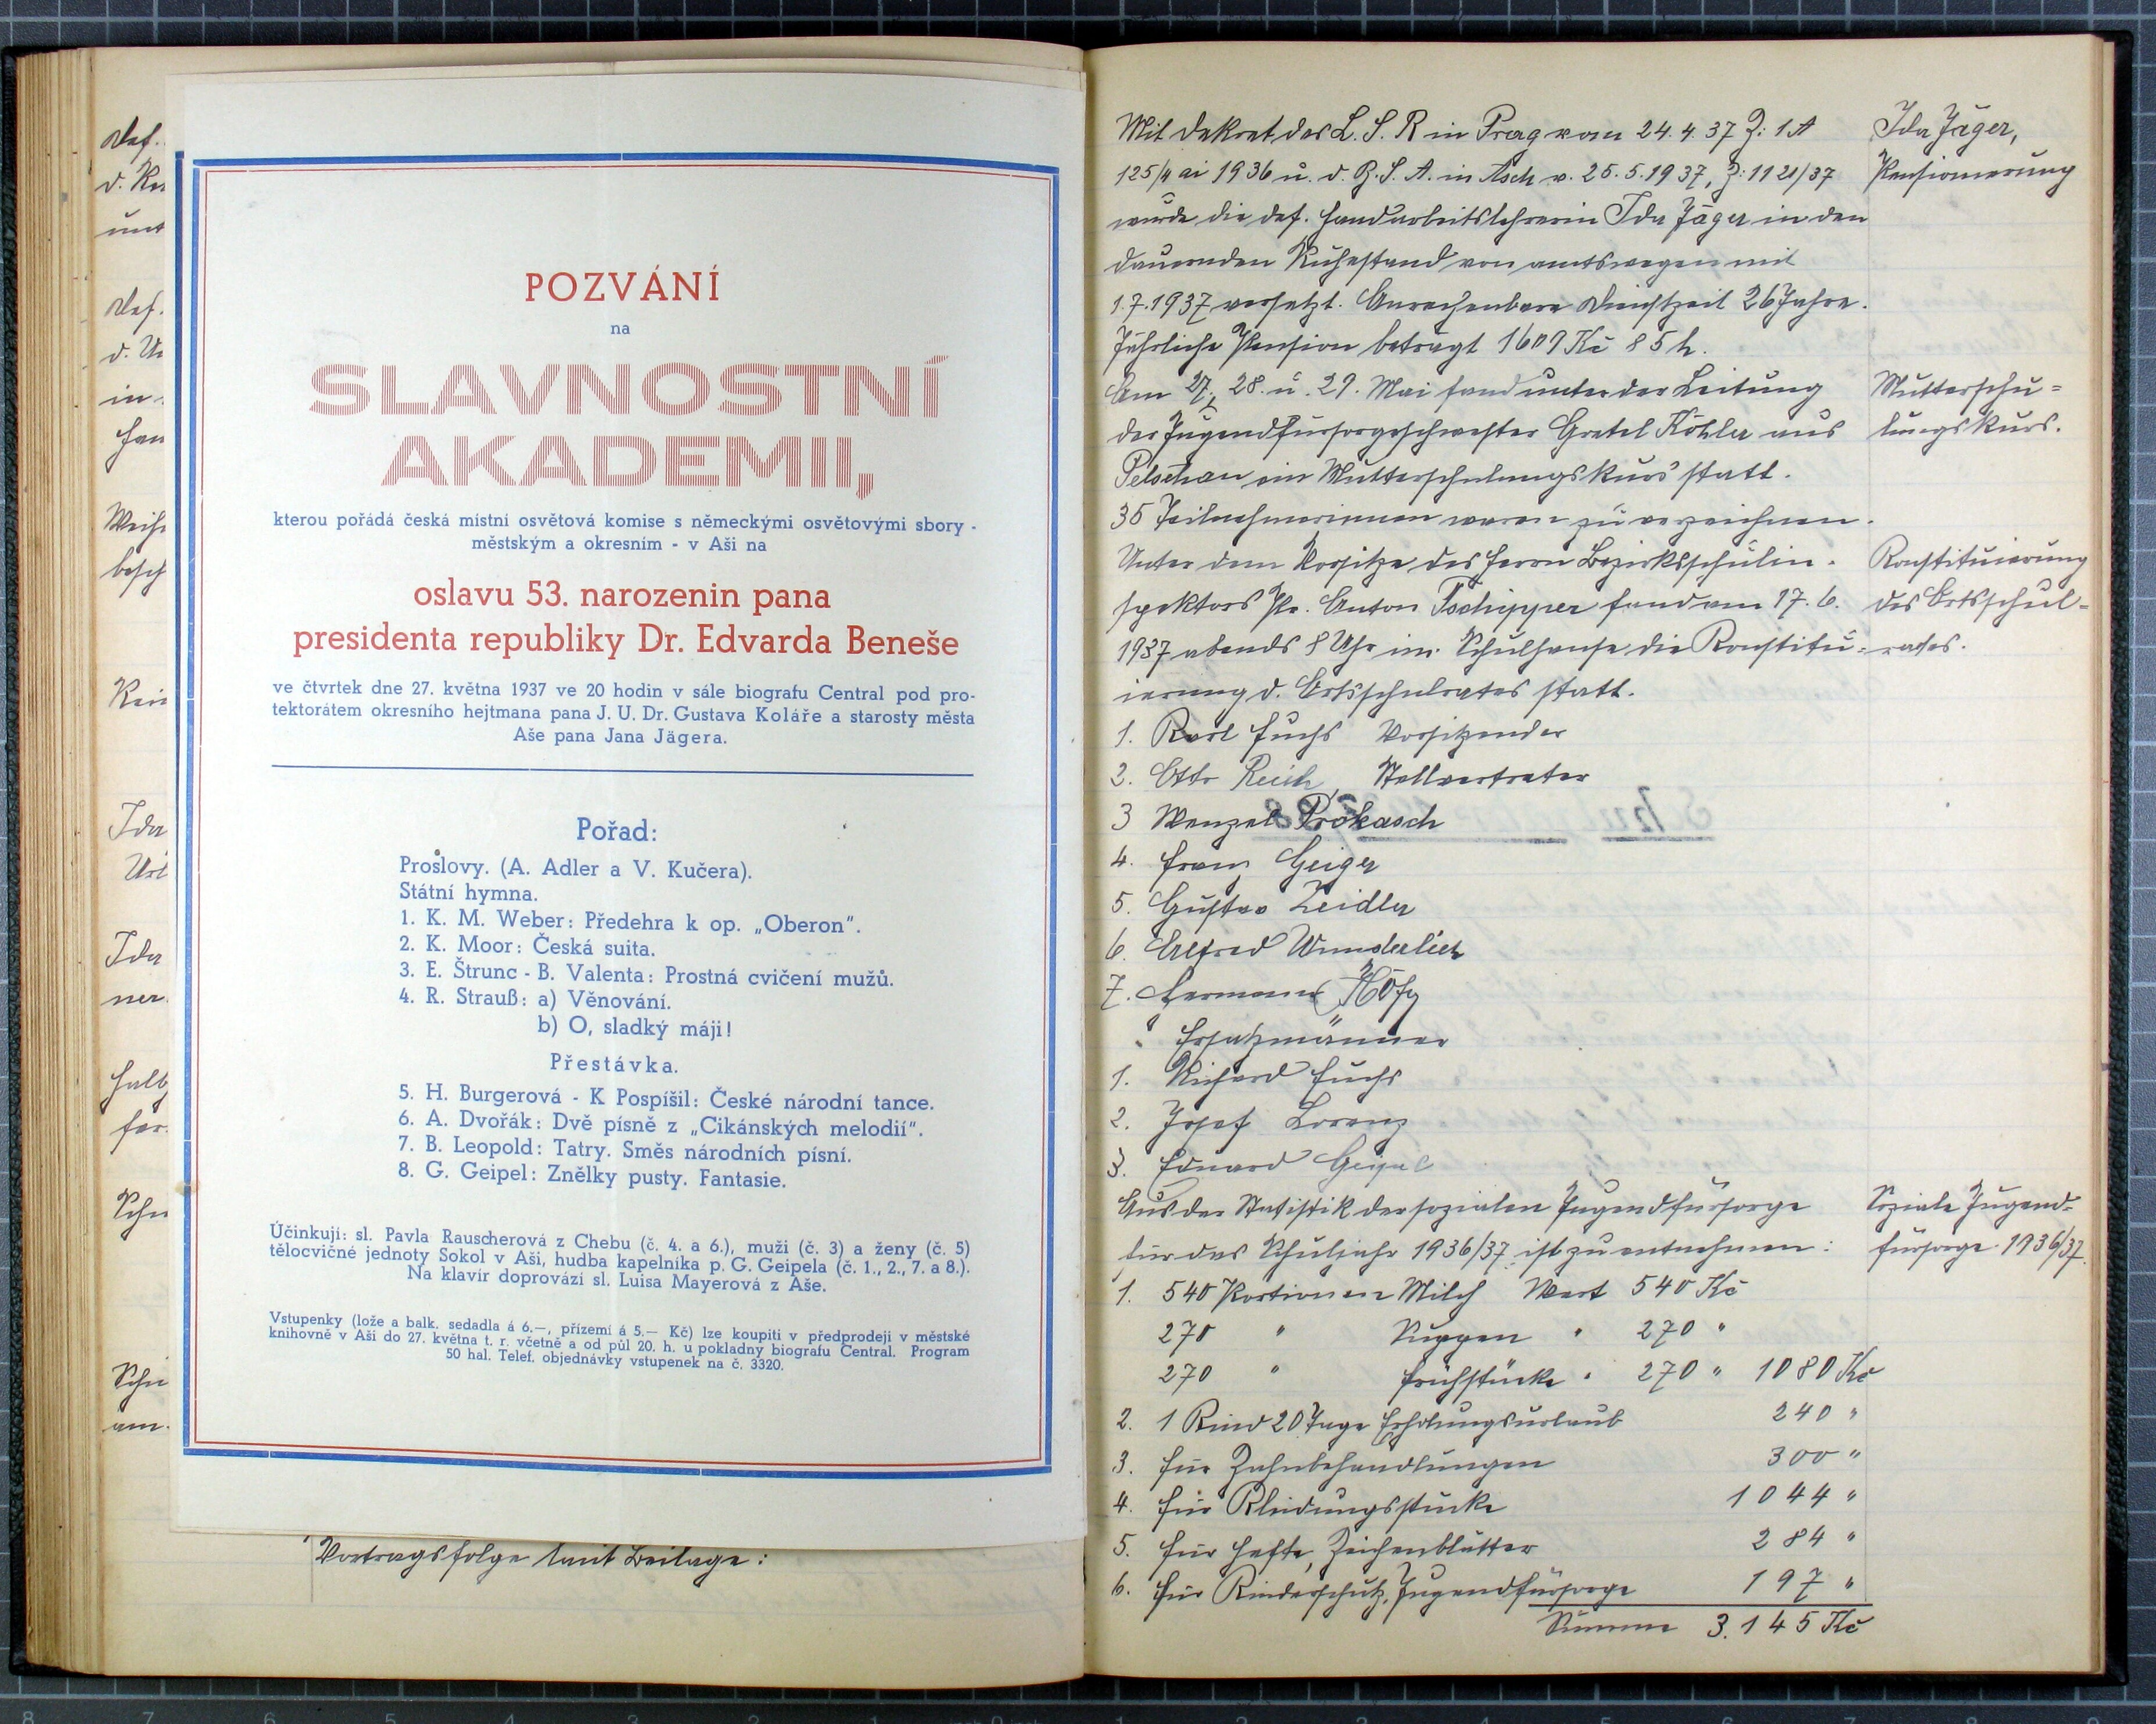 Def.
d. Ku
unt
Def.
in
Han
Weihn
besch
Kein
Ida
Url
Ida
ner
Halb
för
Schu
am
POZVÁNÍ
na
SLAVNOSTNÍ
AKADEMII,
kterou pořádá česká místní osvětová komise s německými osvětovými sbory -
městským a okresním - v Aši na
oslavu 53. narozenin pana
presidenta republiky Dr. Edvarda Beneše
ve čtvrtek dne 27. května 1937 ve 20 hodin v sále biografu Central pod pro-
tektorátem okresního hejtmana pana J. U. Dr. Gustava Koláře a starosty města
Aše pana Jana Jägera.
Pořad:
Proslovy. (A. Adler a V. Kučera).
Státní hymna.
1. K. M. Weber: Předehra k op. „Oberon“.
2. K. Moor: Česká suita.
3. E. Štrunc - B. Valenta: Prostná cvičení mužů.
4. R. Strauß: a) Věnování.
b) O, sladký máji!
Přestávka.
5. H. Burgerová - K Pospíšil: České národní tance.
6. A. Dvořák: Dvě písně z „Cikánských melodií“.
7. B. Leopold: Tatry. Směs národních písní.
8. G. Geipel: Znělky pusty. Fantasie.
Účinkují: sl. Pavla Rauscherová z Chebu (č. 4. a 6.), muži (č. 3) a ženy (č. 5)
tělocvičné jednoty Sokol v Aši, hudba kapelníka p. G. Geipela (č. 1., 2., 7. a 8.).
Na klavír doprovází sl. Luisa Mayerová z Aše.
Vstupenky (lože a balk. sedadla á 6.—, přízemí á 5.— Kč) lze koupiti v předprodeji v městské
knihovně v Aši do 27. května t. r. včetně a od půl 20. h. u pokladny biografu Central. Program
50 hal. Telef. objednávky vstupenek na č. 3320.
Vortragsfolge laut Beilage:
Mit Dekret des L. S. R in Prag vom 24. 4. 37 Z: 1 A
125/4 ai 1936 u. d. B. S. A. in Asch v. 25. 5. 1937, Z: 1121/37
wurde die def. Handarbeitslehrerin Ida Jäger in den
dauernden Ruhestand von amtswegen mit
1. 7. 1937 versetzt. Anrechenbare Dienstzeit 26 Jahre.
Jährliche Pension beträgt 1609 Kč 85 h.
Am 27., 28. u. 29. Mai fand unter der Leitung
der Jugendfürsorgeschwester Gretel Köhler aus
Petschau ein Mutterschulungskurs statt.
35 Teilnehmerinnen waren zu verzeichnen.
Unter dem Vorsitze des Herrn Bezirksschulin-
spektors Anton Tschipper fand am 17. 6.
1937 abends 8 Uhr im Schulhause die Konstitu-
ierung d. Ortsschulrates statt.
1. Karl Fuchs Vorsitzender
2. Otto Reich, Stellvertreter
3 Wenzel Prokasch
4. Franz Geiger
5. Gustav Zeidler
6. Alfred Wunderlich
7. Hermann
Ersatzmänner
1. Richard Fuchs
2. Josef Lorenz
3. Eduard Geipel
Aus der Statistik der sozialen Jugendfürsorge
für das Schuljahr 1936/37 ist zu entnehmen:
1. 540 Portionen Milch Wert 540 Kč
270 " Suppen " 270 "
270 " Frühstücke " 270 " 1080 Kč
2. 1 Kind 20 Tage Erholungsurlaub 240 "
3. für Zahnbehandlungen 300 "
4. für Kleidungsstücke 1044 "
5. für Hefte, Zeichenblätter 284 "
6. für Kinderschutz, Jugendfürsorge 197 "
Summe 3.145 Kč
Ida Jäger,
Pensionierung
Mutterschu=
lungskurs.
Konstituierung
des Ortsschul=
rates.
Soziale Jugend=
fürsorge 1936/37.